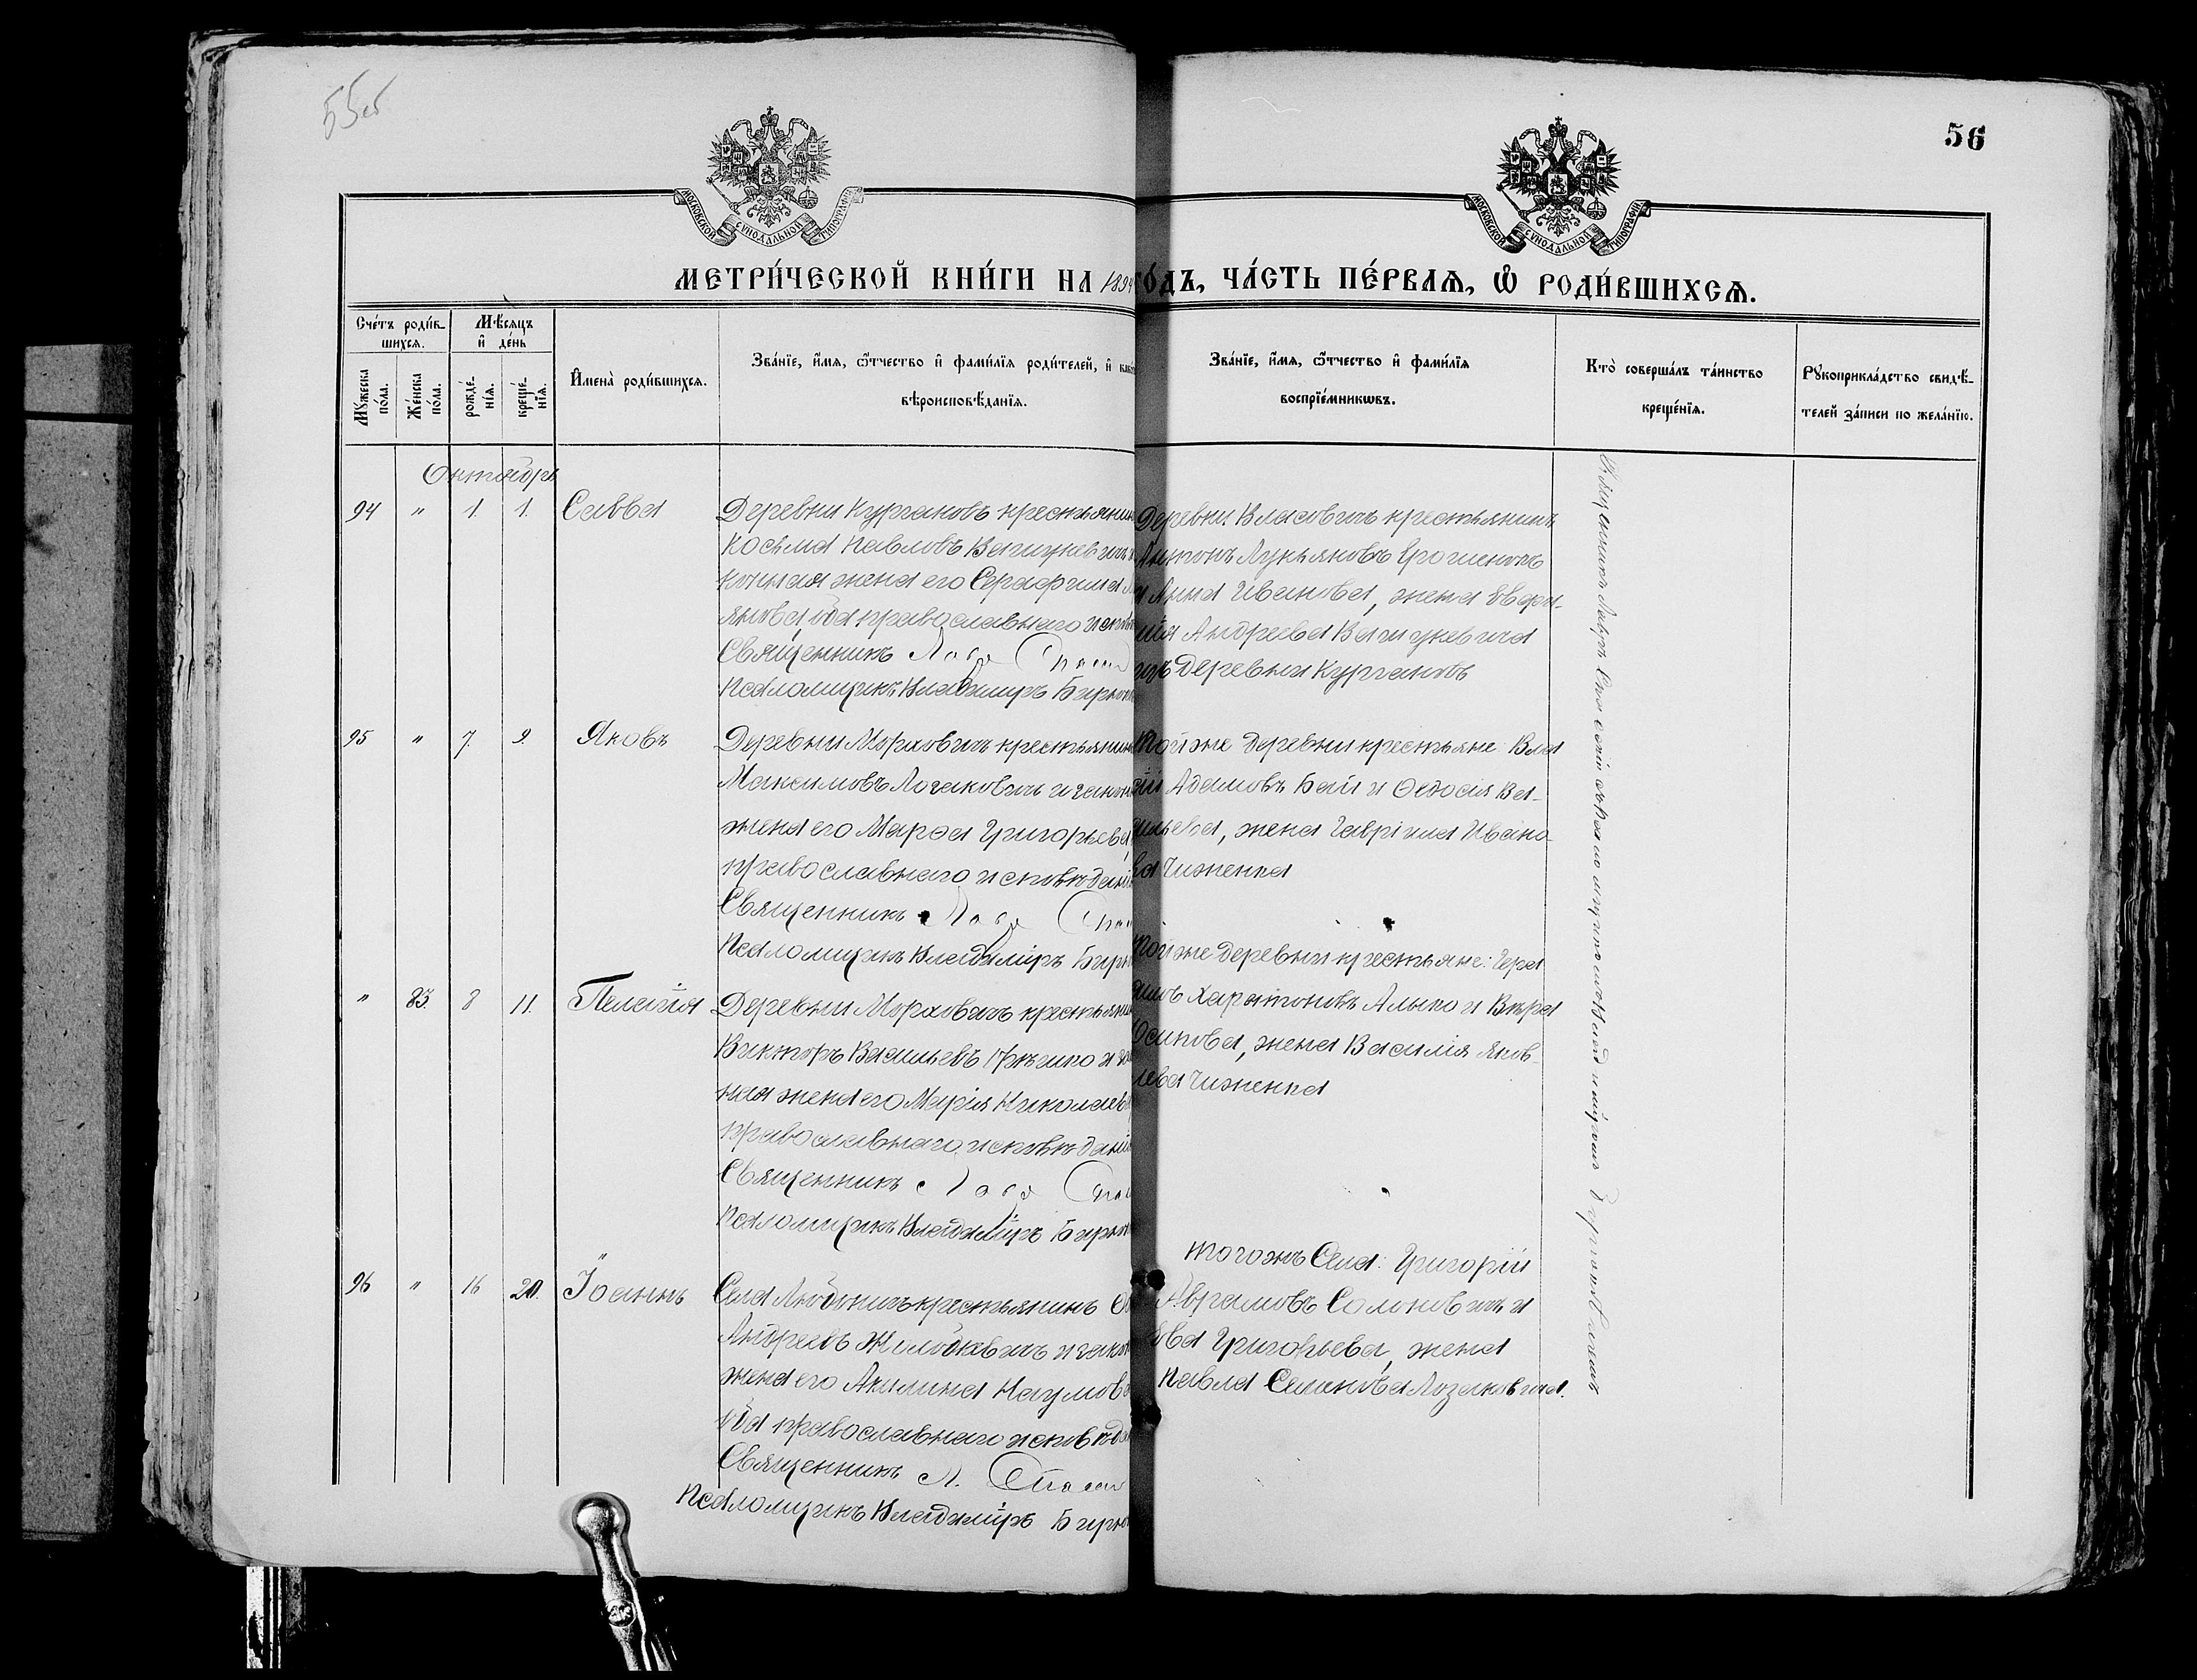 55об
56
МОСКОВСКОЙ СѴНОДАЛЬНОЙ ТИПОГРАФІИ
МОСКОВСКОЙ СѴНОДАЛЬНОЙ ТИПОГРАФІИ
МЕТРИ́ЧЕСКОЙ КНИ́ГИ НА 1894 ГО́ДЪ, ЧА́СТЬ ПЕ́РВАѦ, Ѡ РОДИ́ВШИХСѦ.
Сче́тъ роди́в-
шихсѧ.
Мꙋ́жеска по́ла.
Же́нска по́ла.
Мѣ́сѧцъ
и҆ де́нь
рожде́-
нїѧ.
креще́-
нїѧ.
И҆мена̀ роди́вшихсѧ.
Зва́нїе, и҆́мѧ, ѻ҆́тчество и҆ фами́лїѧ роди́телей, и҆
вѣроисповѣ́данїѧ.
Зва́нїе, и҆́мѧ, ѻ҆́тчество и҆ фами́лїѧ
воспрїе́мникѡвъ.
Кто̀ соверша́лъ та́инство
креще́нїѧ.
Рꙋкоприкла́дство свидѣ́-
телей за́писи по жела́нїю.
Октябрь
94 " 1 1. Савва
Деревни Кургановъ крестьянинъ
Косьма Павловъ Вашукевичъ
конная жена его Серафима
янова, оба православнаго
Священникъ
Псаломщикъ Владиміръ
Деревни Власовичъ крестьянинъ
Антонъ Лукьяновъ Ярошенокъ
и Анна Иванова, жена
Андреева Вашукевича
изъ деревни Кургановъ
95 " 7. 9. Яковъ
Деревни Морховичъ крестьянинъ
Максимовъ Лозаковичъ и закон
жена его Марѳа Григорьева,
православнаго исповѣдані
Священникъ
Псаломщикъ Владиміръ
Той же деревни крестьяне: Вла
сій Адамовъ Бай и Ѳедосія Ва-
сильева, жена Гавріила Ивано-
ва Чиженка
" 83. 8 11. Пелагія
Деревни Морховичъ крестьянинъ
Викторъ Васильевъ
ная жена его Марія Николаев
православнаго исповѣдані
Священникъ
Псаломщикъ Владиміръ
Той же деревни крестьяне: Гера
симъ Харитоновъ Алько и Вѣра
Осипова, жена Василія Яков-
лева Чиженка
96 " 16 20. Іоаннъ
Села крестьянинъ
Андреевъ и закон
жена его Акилина Наумов
оба православнаго исповѣд
Священникъ Л.
Псаломщикъ Владиміръ
того жъ Села: Григорій
Аврамовъ Солоновичъ и
Ева Григорьева, жена
Павла Семенова Лозаковича.
Священникъ Лавръ